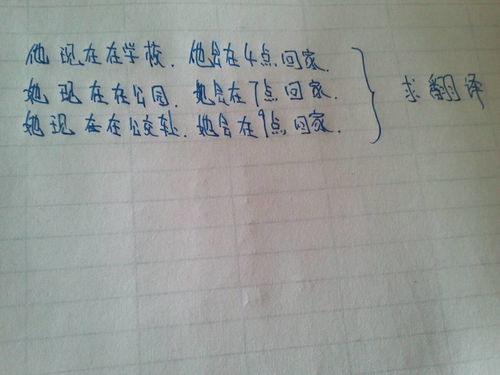 他现在在学校.他会在4点回家.
她现在在公园.她会在7点回家.
她现在在公交站.她会在9点回家.
求翻译